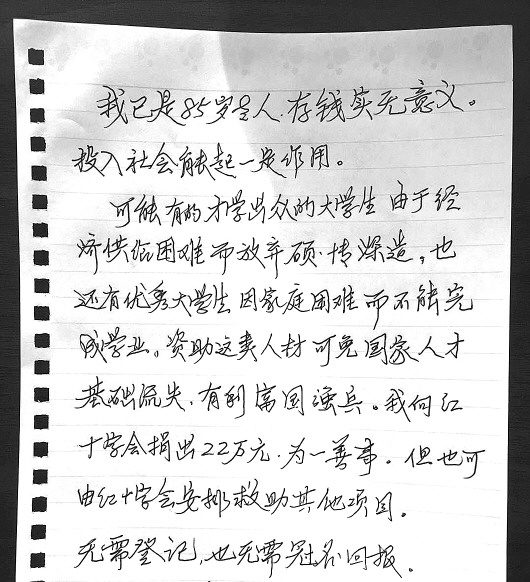 我已是85岁老人.存钱实无意义。
投入社会能起一定作用。
可能有的才学出众的大学生由于经
济供给困难而放弃硕.博深造,也
还有优秀大学生因家庭困难而不能完
成学业。资助这类人材可免国家人才
基础流失.有利富国强兵。我向红
十字会捐出22万元.为一善事。但也可
由红十字会安排救助其他项目。
无需登记,也无需冠名回报.